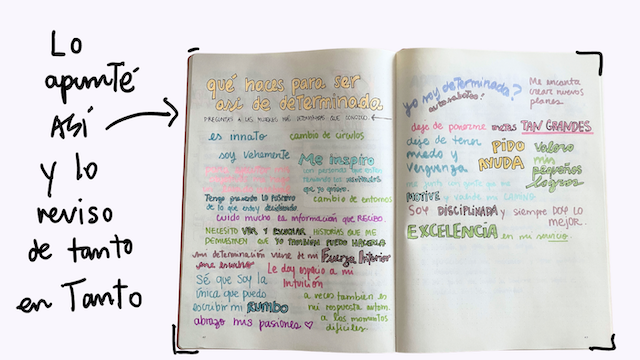 Lo
apunté
ASÍ
y lo
reviso
de tanto
en Tanto
qué haces para ser
así de determinada
PREGUNTAS A LAS MUJERES MÁS DETERMINADAS QUE CONOZCO
es innato
cambio de círculos
soy vehemente
Me inspiro
que yo quiero.
Tengo presente lo
de lo que estoy
cambio de entornos
cuido mucho la información que RECIBO.
NECESITO VER Y ESCUCHAR HISTORIAS QUE ME
DEMUESTREN QUE YO TAMBIÉN PUEDO HACERLO
mi determinación viene de mi Fuerza Interior
me escucho
Le doy espacio a mi
intuición
Sé que soy la
única que puede
escribir mi RUMBO
a veces también es
mi respuesta autom.
a los momentos
difíciles
abrazo mis pasiones ♡
yo soy determinada?
Me encanta
crear nuevos
planes
deje de ponerme metas TAN GRANDES
deje de tener
miedo y
vergüenza
PIDO
AYUDA
Valoro
mis
pequeños
logros
SOY DISCIPLINADA y siempre DOY LO
mejor
EXCELENCIA en mi